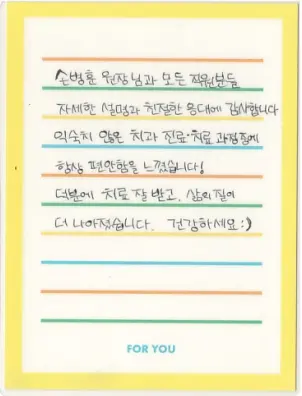 손병훈 원장님과 모든 직원분들
자세한 설명과 친절한 응대에 감사합니다
익숙치 않은 치과 진료·치료 과정임에
항상 편안함을 느꼈습니다!
덕분에 치료 잘 받고, 삶의 질이
더 나아졌습니다. 건강하세요 :)
FOR YOU